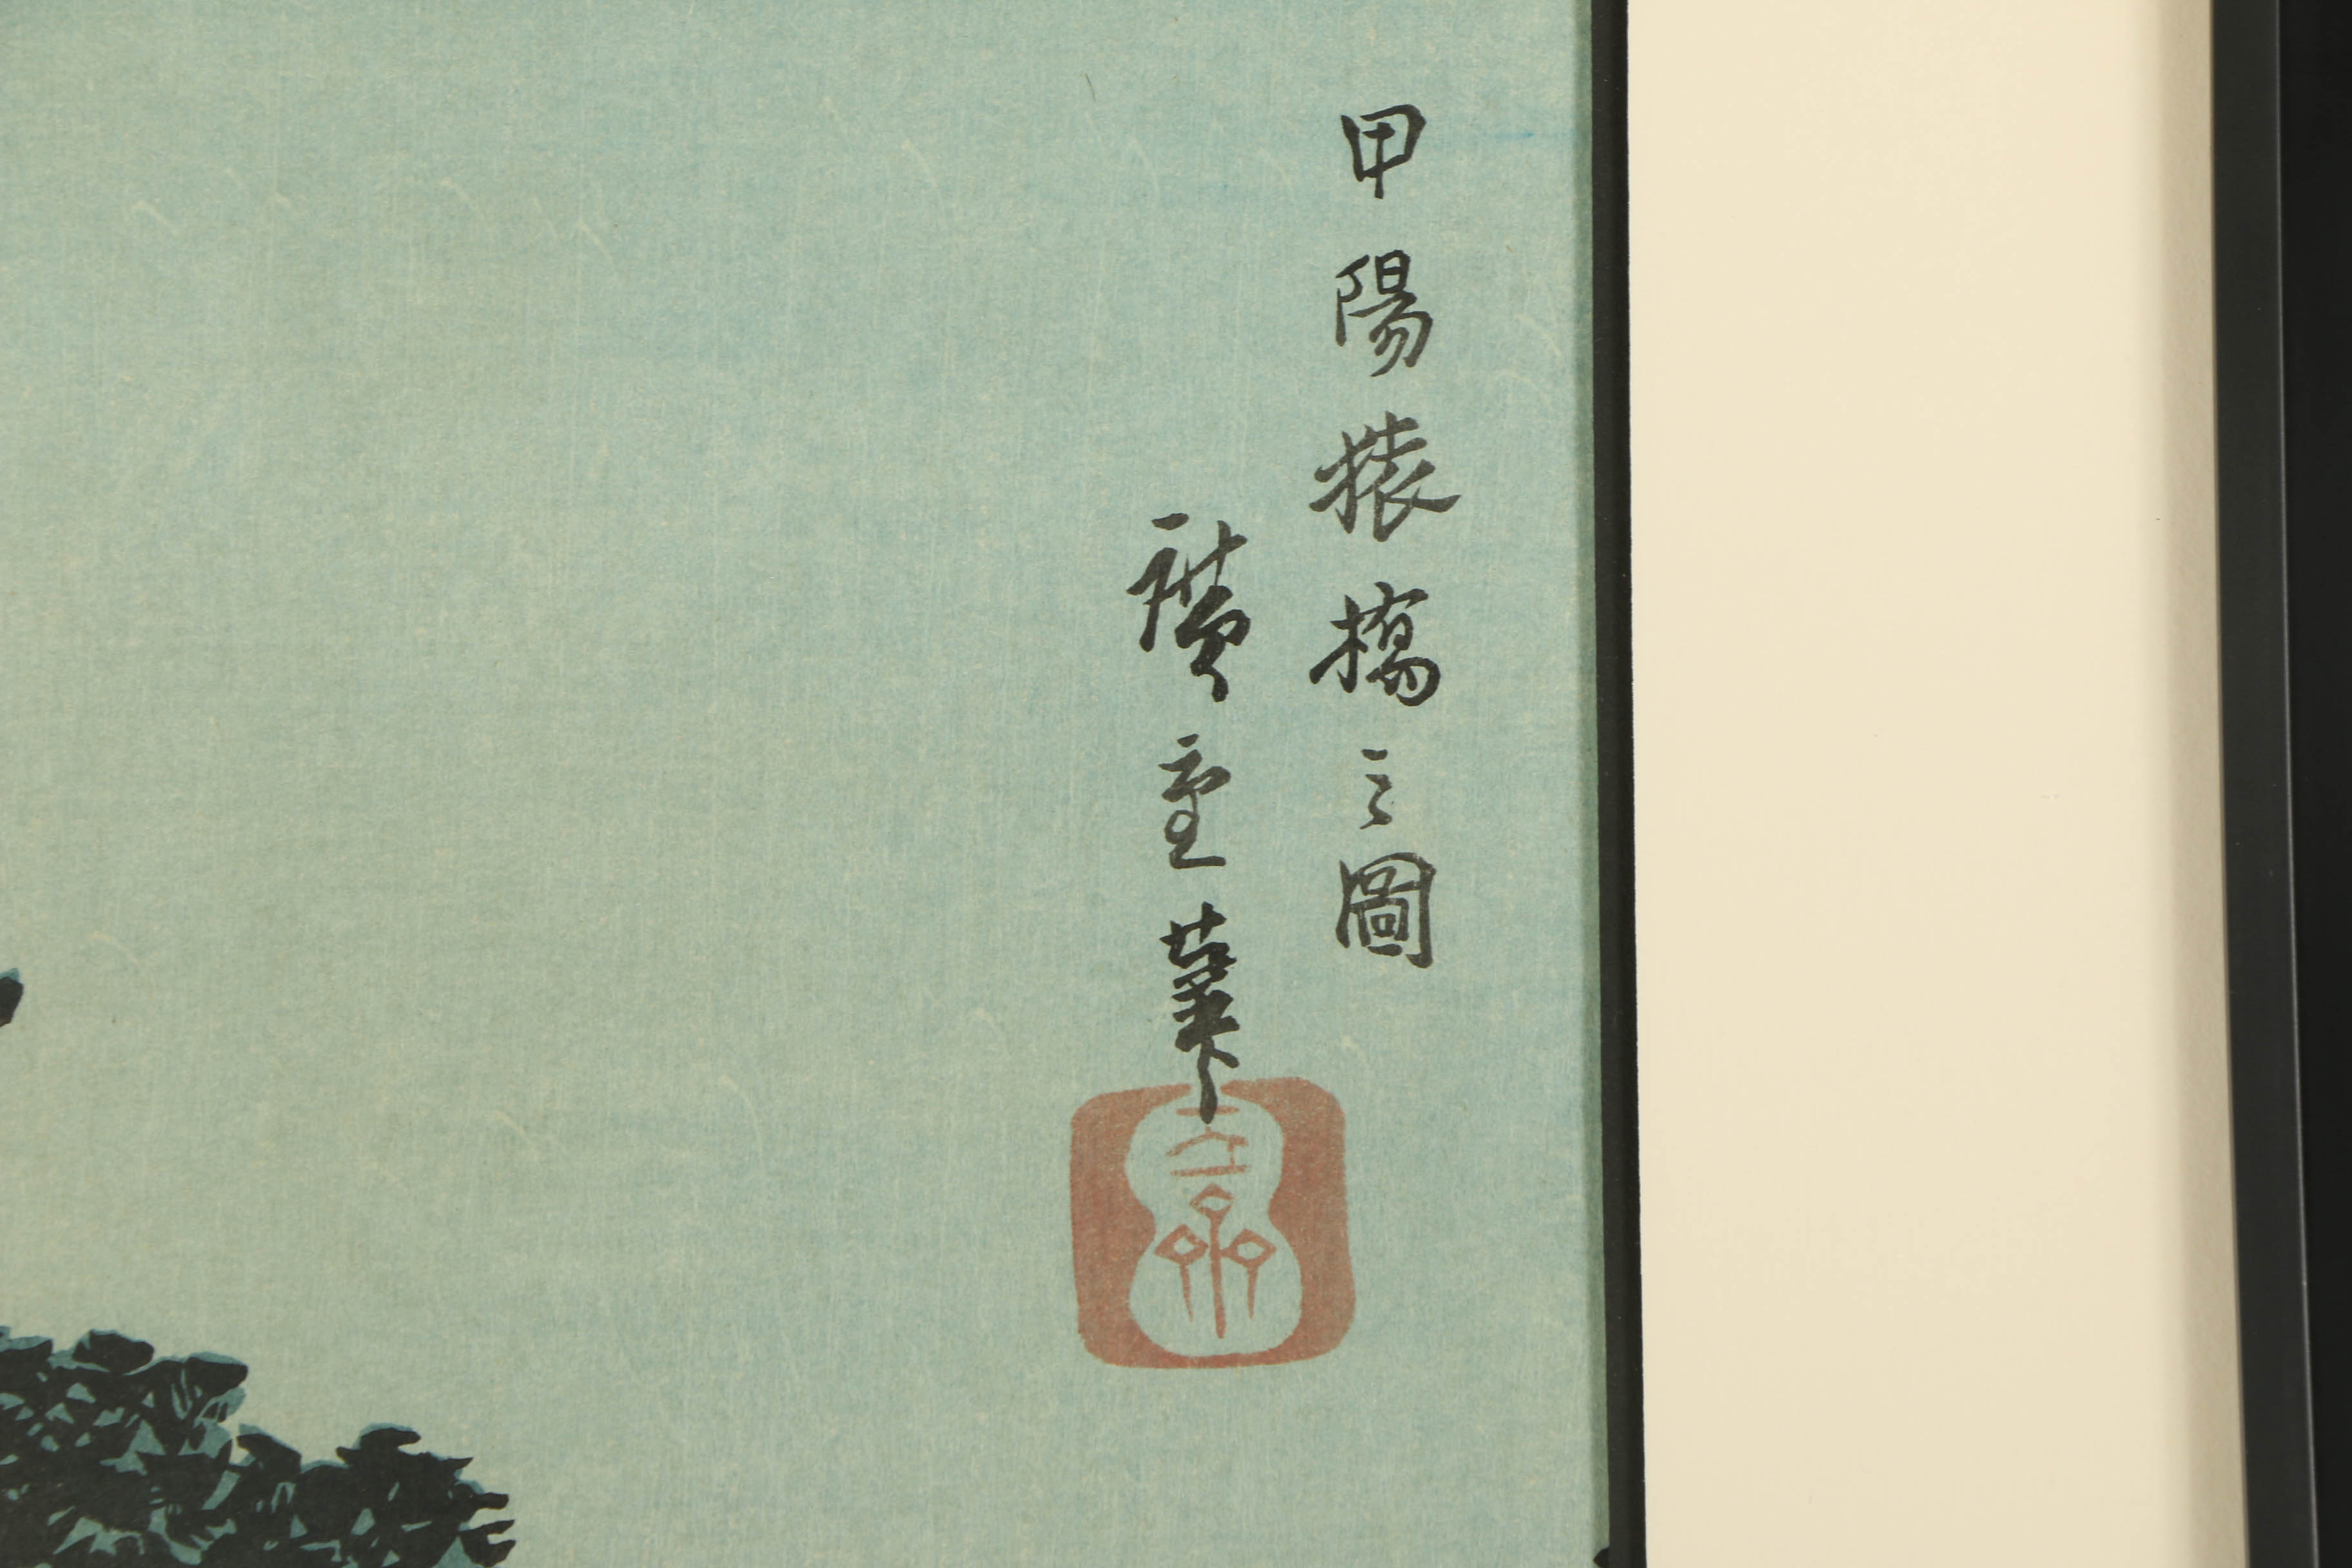 甲陽猿橋之圖
廣重筆